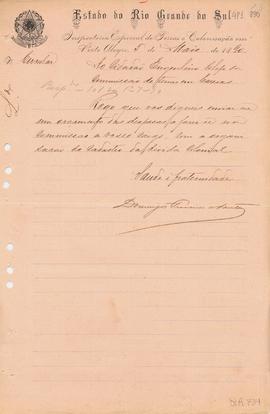 Estado do Rio Grande do Sul
Inspectoria Especial de Terras e Colonisação em
Porto Alegre, 5 de Maio de 1890
Circular
Ao Cidadão Engenheiro Chefe da
Commissão de terras em Caxias
Rogo que vos digneis enviar-me
um orçamento das despezas a fazer se
commissão a vosso cargo com a organi
sação do cadastro da divida colonial
Saude e fraternidade